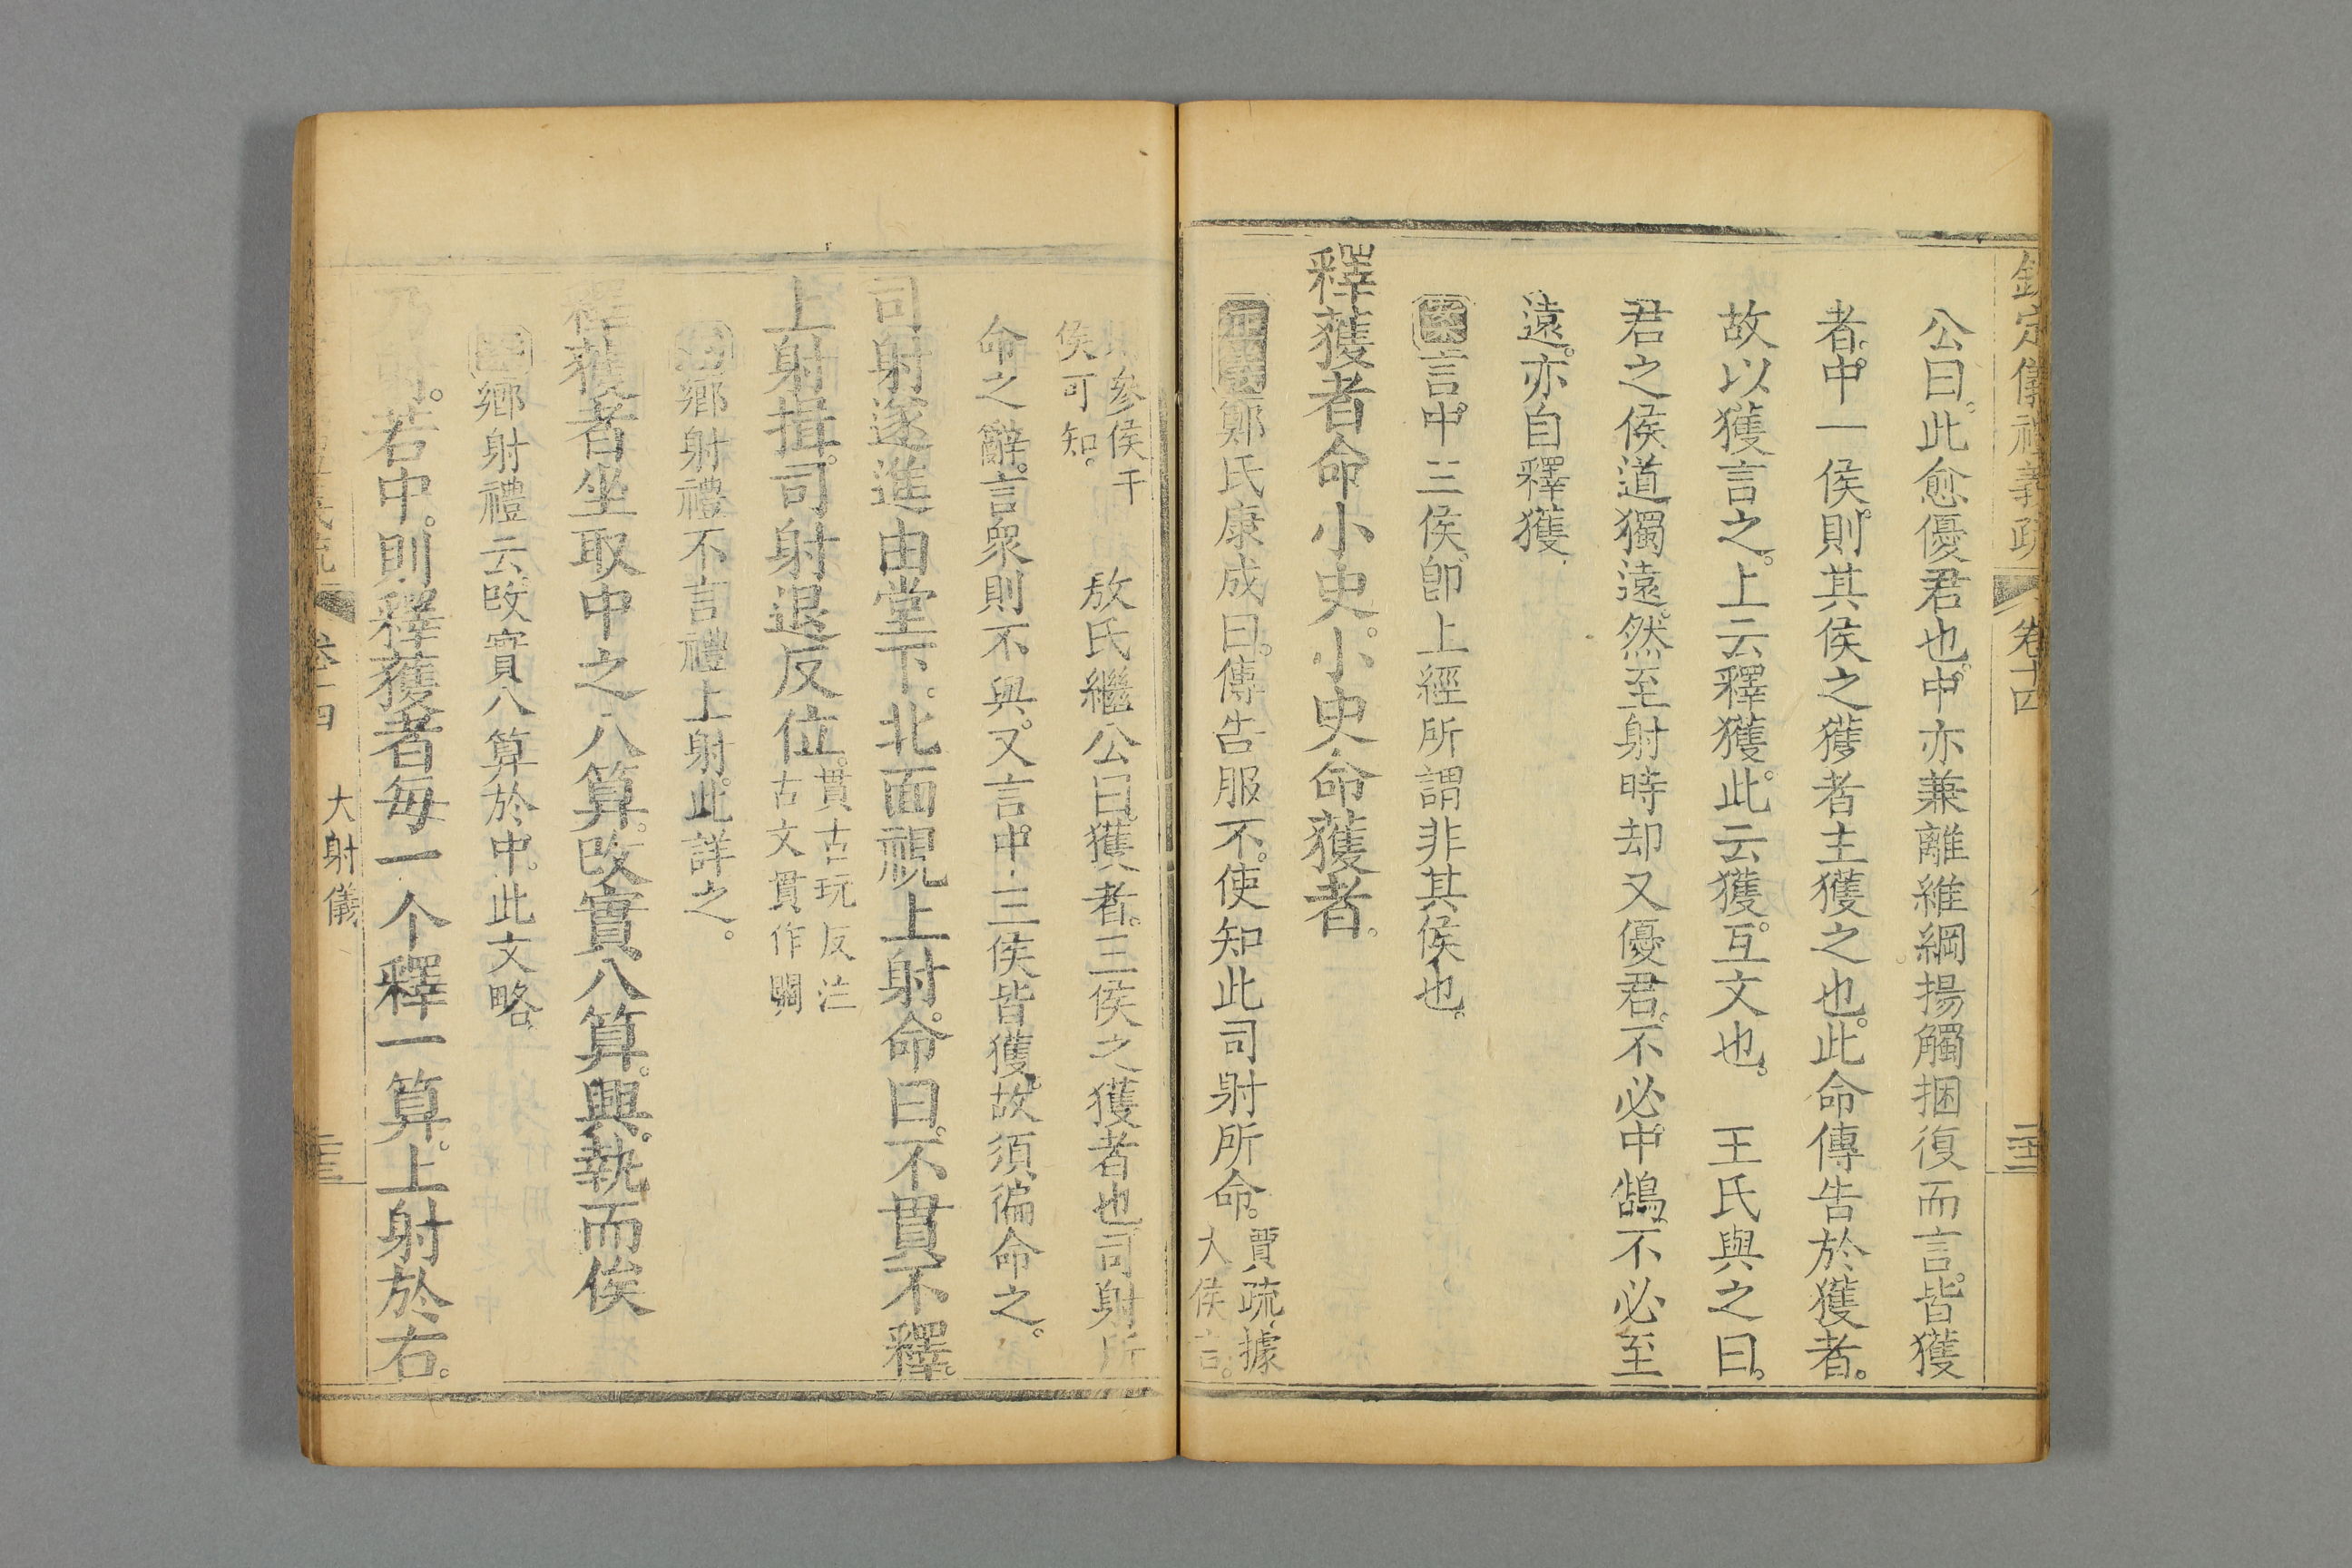 欽定儀禮義疏 卷十四
公曰。此愈優君也。中亦兼離維綱揚觸捆復而言。皆獲
者。中一侯。則其侯之獲者主獲之也。此命傳告於獲者。
故以獲言之。上云釋獲。此云獲。互文也。 王氏與之曰。
君之侯道獨遠。然至射時却又優君。不必中鵠。不必至
遠。亦自釋獲。
案言中三侯。卽上經所謂非其侯也。
釋獲者命小史。小史命獲者。
正義鄭氏康成曰。傳告服不。使知此司射所命。賈疏。據
大侯言。
參侯干
侯可知。 敖氏繼公曰。獲者。三侯之獲者也。司射所
命之辭。言衆則不與。又言中三侯皆獲。故須徧命之。
司射遂進由堂下。北面視上射。命曰。不貫不釋。
上射揖。司射退反位。貫古玩反注
古文貫作關
鄉射禮不言禮上射。此詳之。
釋獲者坐取中之八算。改實八算。興。執而俟
鄉射禮云。改實八算於中。此文略。
若中。則釋獲者每一个釋一算。上射於右。
卷十四 大射儀